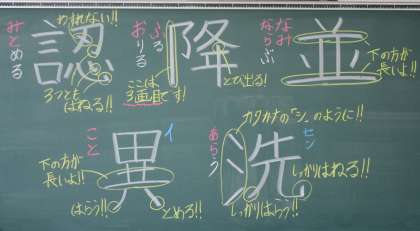 認
みとめる
われない!!
3つとも
はねる!!
降
おりる
ふる
ここは
3画目です!
とび出る!
並
なみ
ならぶ
下の方が
長いよ!!
異
こと
イ
下の方が
長いよ!!
はらう!!
とめる!!
洗
あらう
セン
カタカナの「シ」のように!!
しっかりはねる!!
しっかりはらう!!